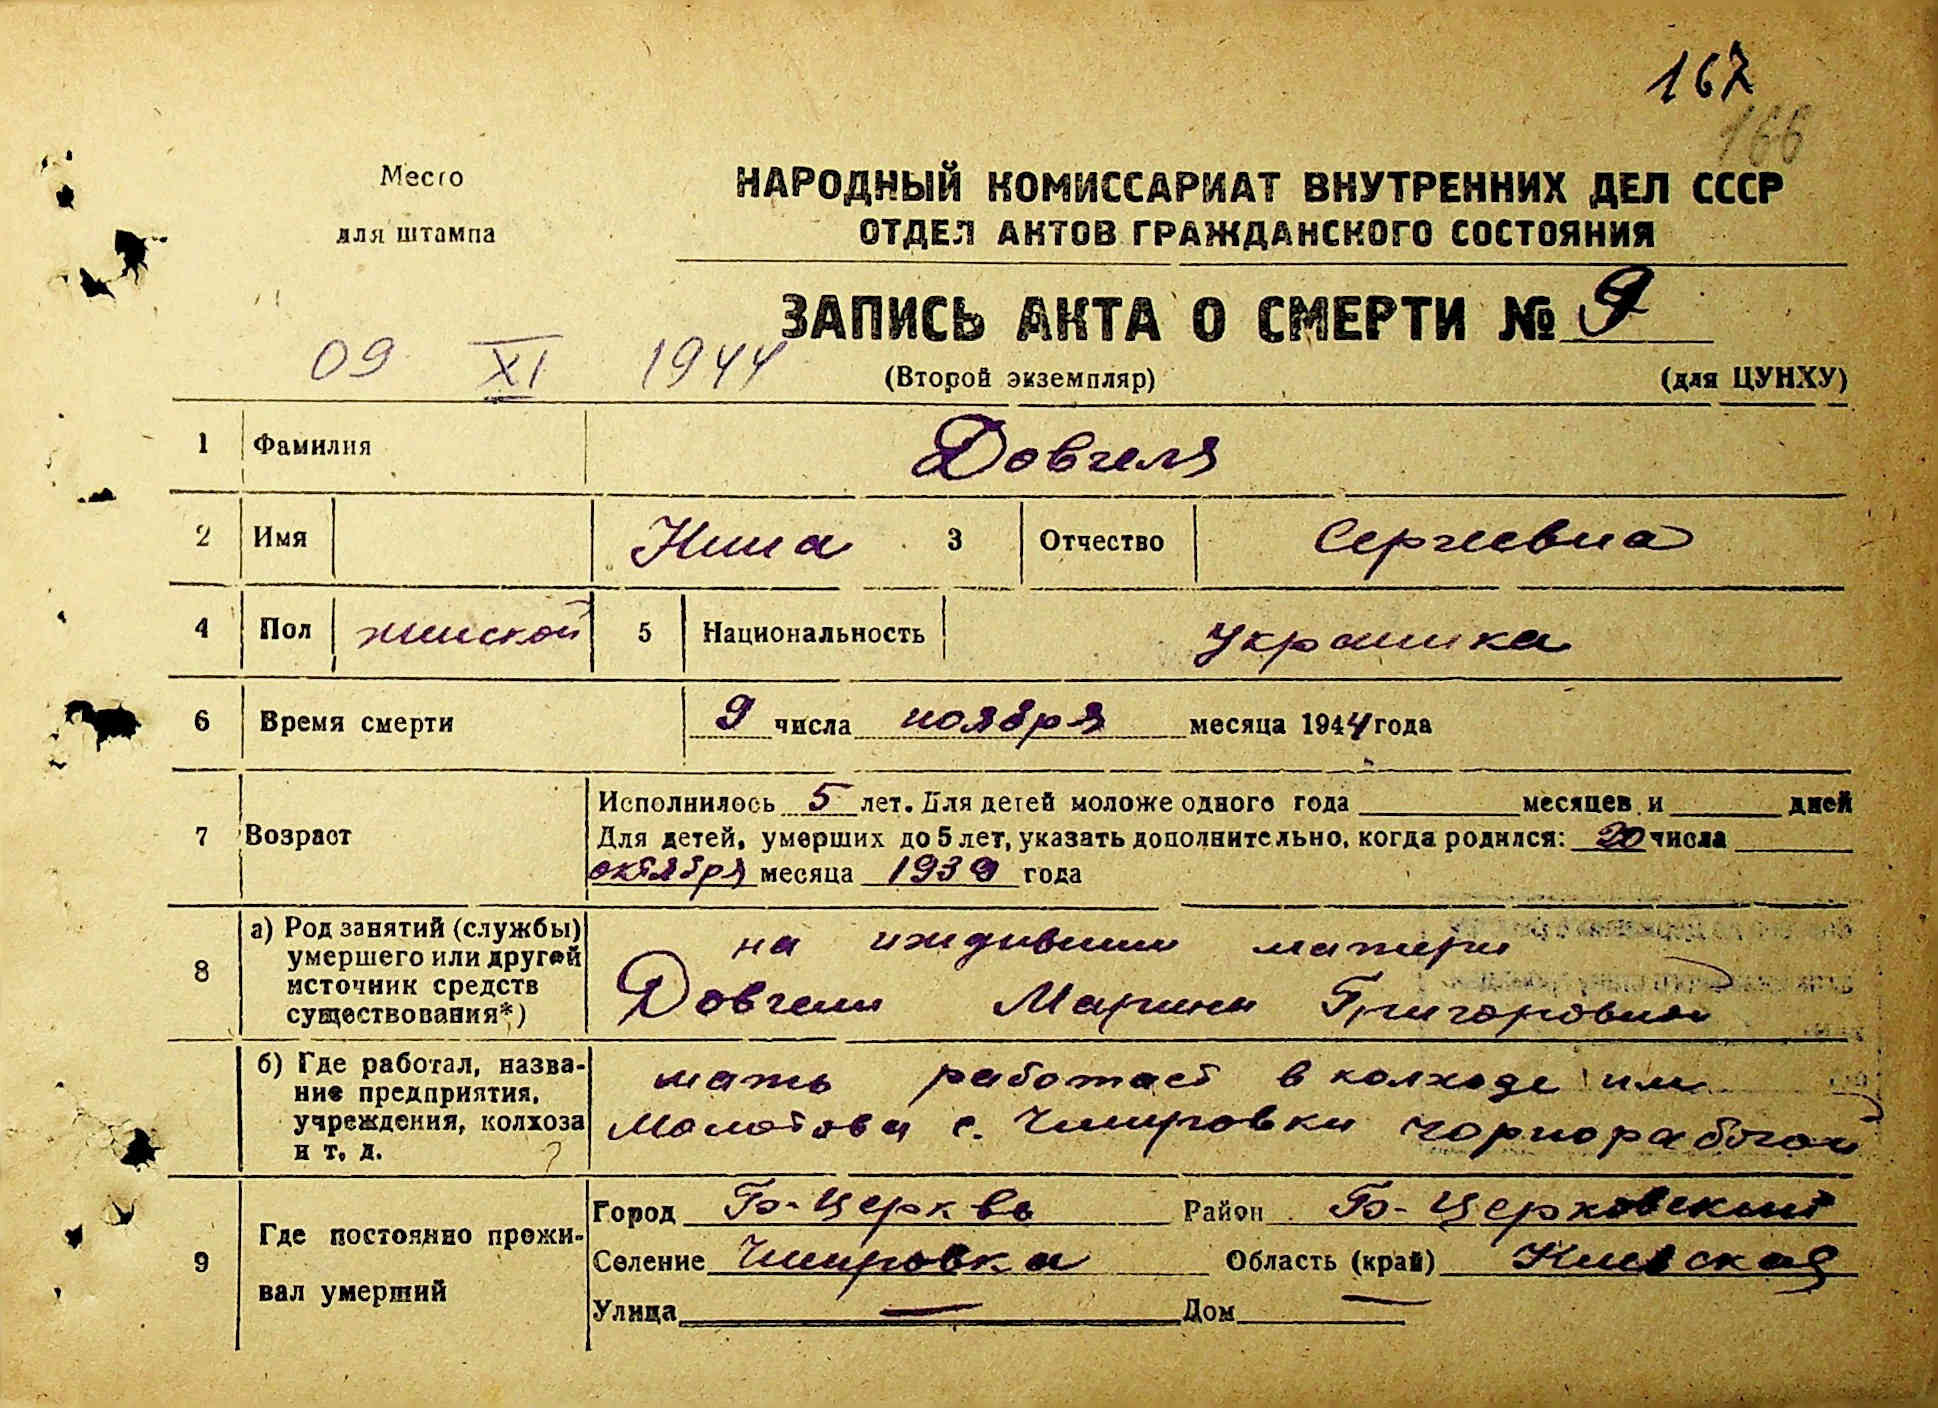 167
166
Место
для штампа
НАРОДНЫЙ КОМИССАРИАТ ВНУТРЕННИХ ДЕЛ СССР
ОТДЕЛ АКТОВ ГРАЖДАНСКОГО СОСТОЯНИЯ
ЗАПИСЬ АКТА О СМЕРТИ № 9
09 XI 1944
(Второй экземпляр) (для ЦУНХУ)
1 Фамилия Довгеля
2 Имя Нина 3 Отчество Сергиевна
4 Пол женской 5 Национальность украинка
6 Время смерти 9 числа ноября месяца 1944 года
Исполнилось 5 лет. Для детей моложе одного года месяцев и дней
7 Возраст Для детей, умерших до 5 лет, указать дополнительно, когда родился: 20 числа
октября месяца 1939 года
8 а) Род занятий (службы) умершего или другой источник средств существования*)
на иждивении матери
Довгели Марини Григоровной
б) Где работал, название предприятия, учреждения, колхоза и т. д.
мать работает в колхозе им
Молотова с. Чмировки чорнорабочой
9 Где постоянно проживал умерший
Город Б-Церквь Район Б-Церковский
Селение Чмировка Область (край) Киевская
Улица — Дом —